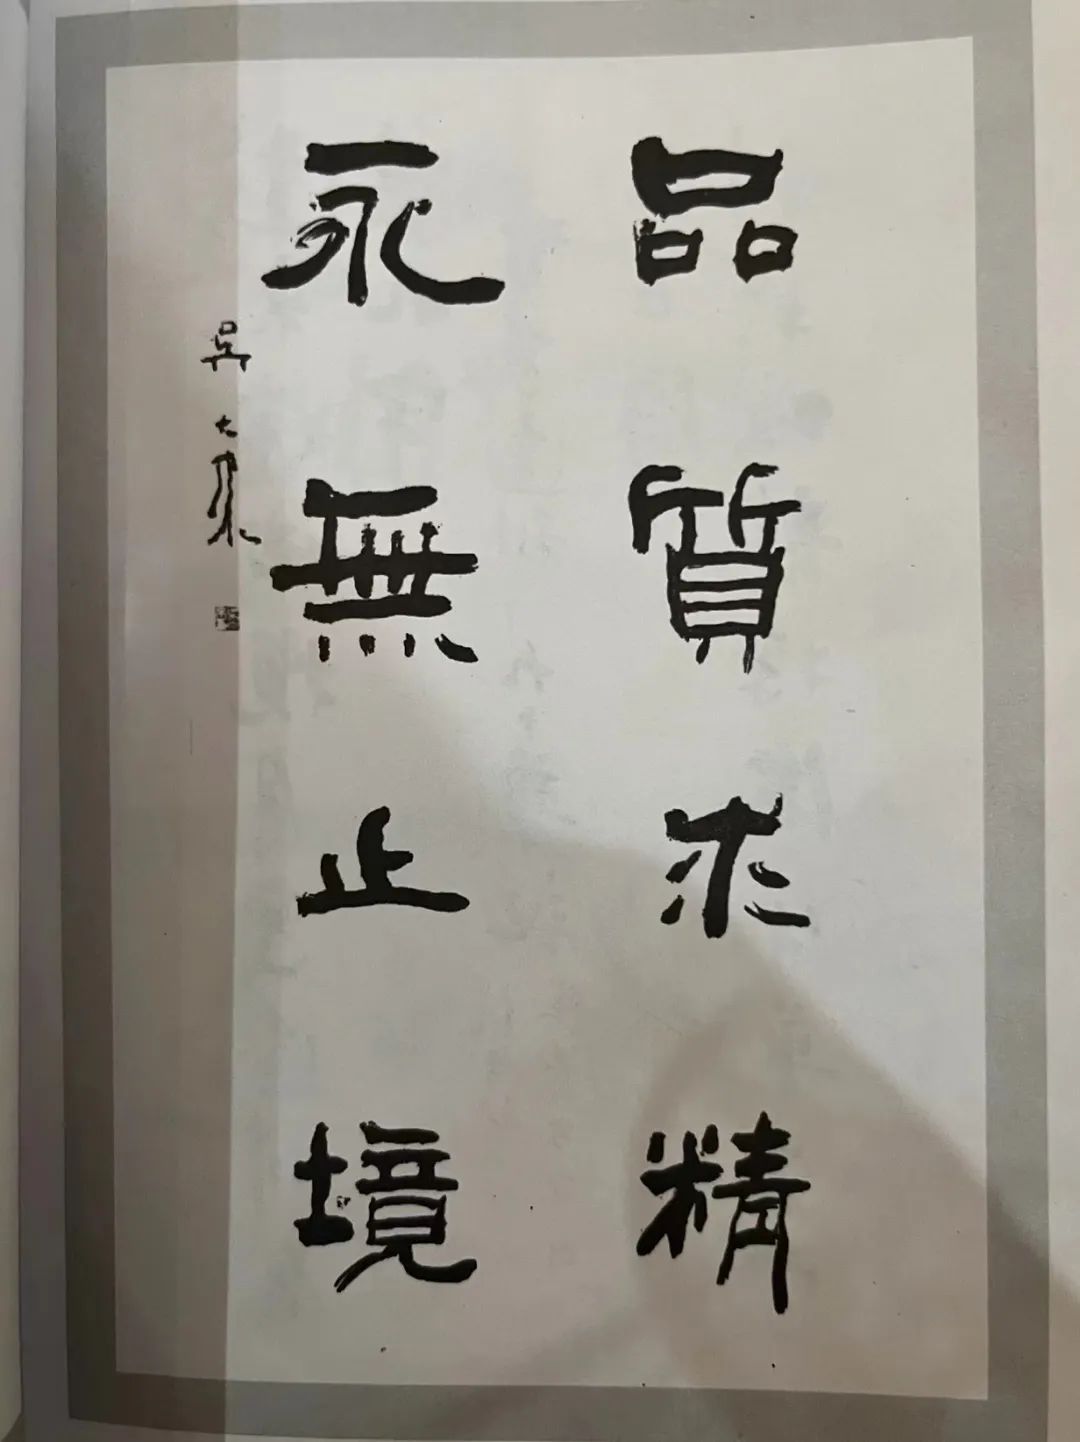 品質求精
永無止境
吴大